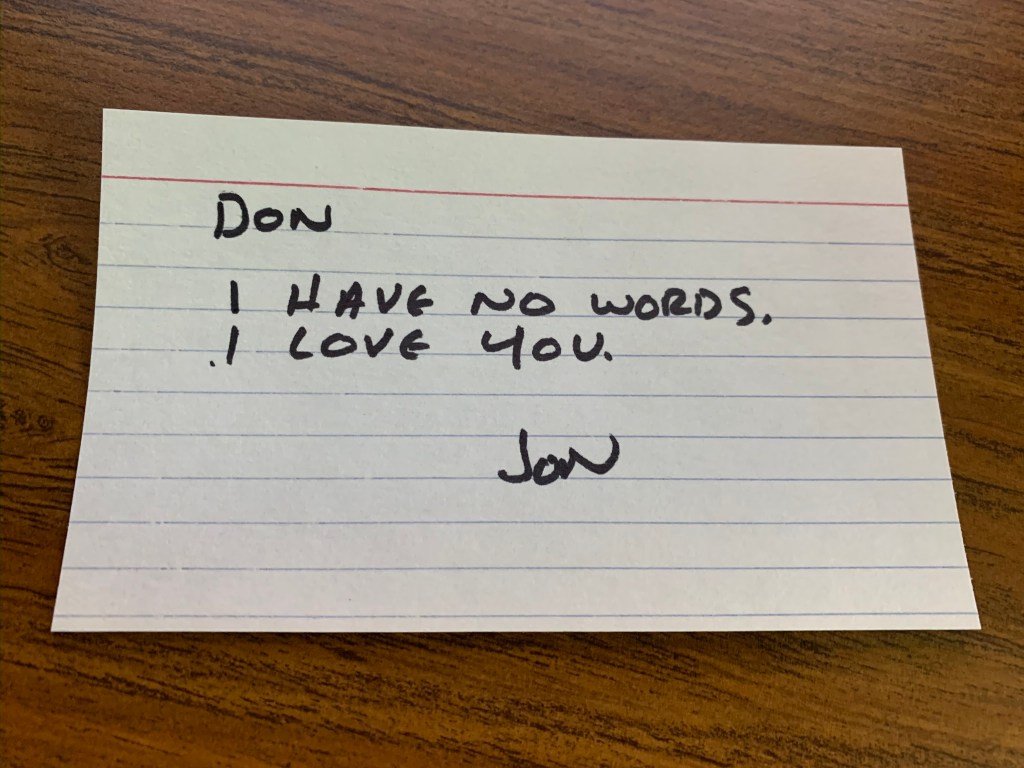 DON
I HAVE NO WORDS.
I LOVE YOU.
JON